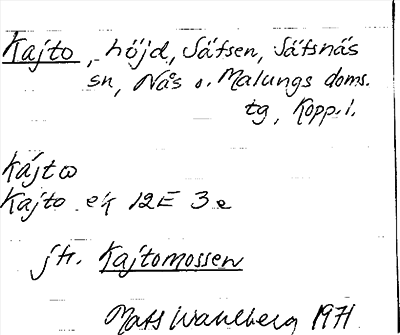 Kajto, höjd, Säfsen, Säfsnäs
sn, Nås o. Malungs doms.
tg, Kopp. l.
kájtω
Kajto ek 12E 3e
jfr. Kajtomossen
Mats Wahlberg 1971